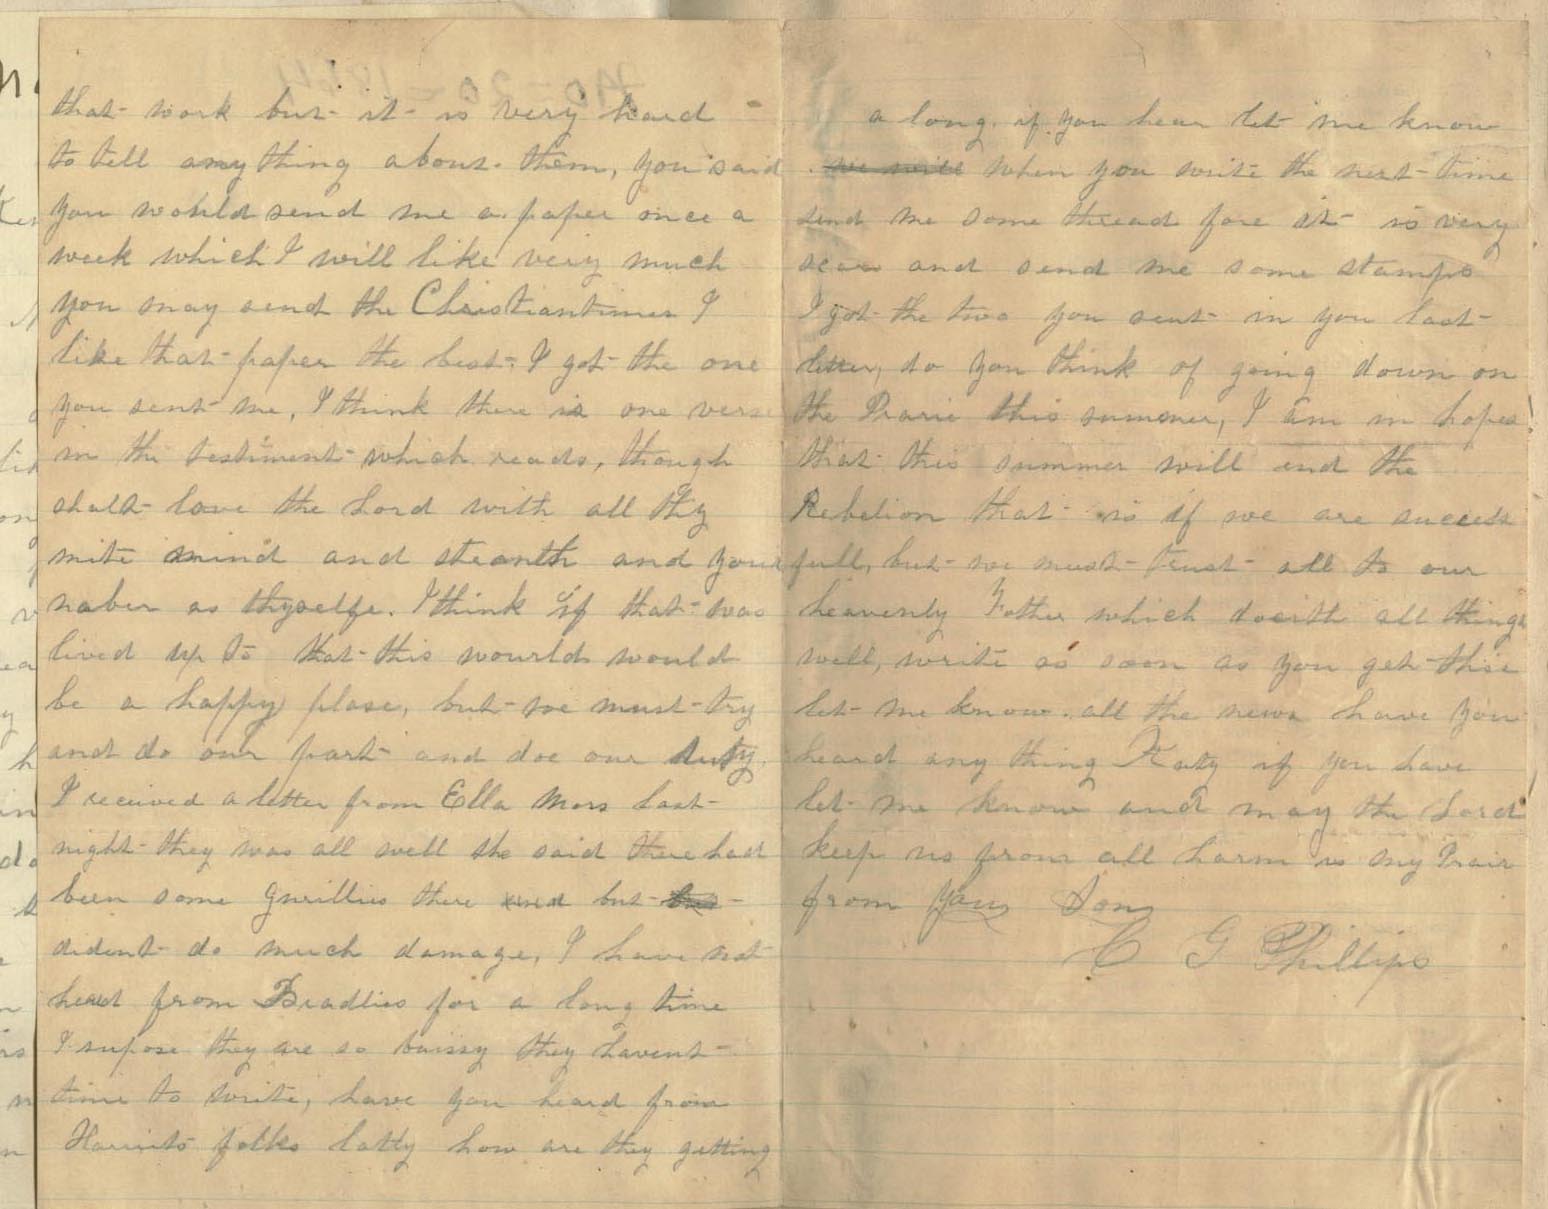 that work but it is very hard
to tell any thing about them, you said
you would send me a paper once a
week which I will like very much
you may send the Christiantimes I
like that paper the best. I got the one
you sent me, I think there is one verse
in the testiment which reads, though
shalt love the Lord with all thy
mite mind and steanth and your
naber as thyselfe. I think if that was
lived up to that this wourld would
be a happy plase, but we must try
and do our part and doe our duty.
I received a letter from Ella Mors last
night they was all well she said there had
been some gurillies there but
dident do much damage, I have not
heard from Bradlies for a long time
I supose they are so buissy they havent
time to write, have you heard from
Harriets folks latly how are they getting
a long. if you hear let me know
we will when you write the next time
send me some thread fore it is very
scar and send me some stamps
I got the two you sent in you last
letter, do you think of going down on
the Prarie this summer, I am in hopes
that this summer will end the
Rebelion that is if we are success
full, but we must trust all to our
heavenly Father which doeith all things
well, write as soon as you get this
let me know. all the news have you
heard any thing Katy if you have
let me know and may the Lord
keep us from all harm is my Prair
from your Son
C G Phillips